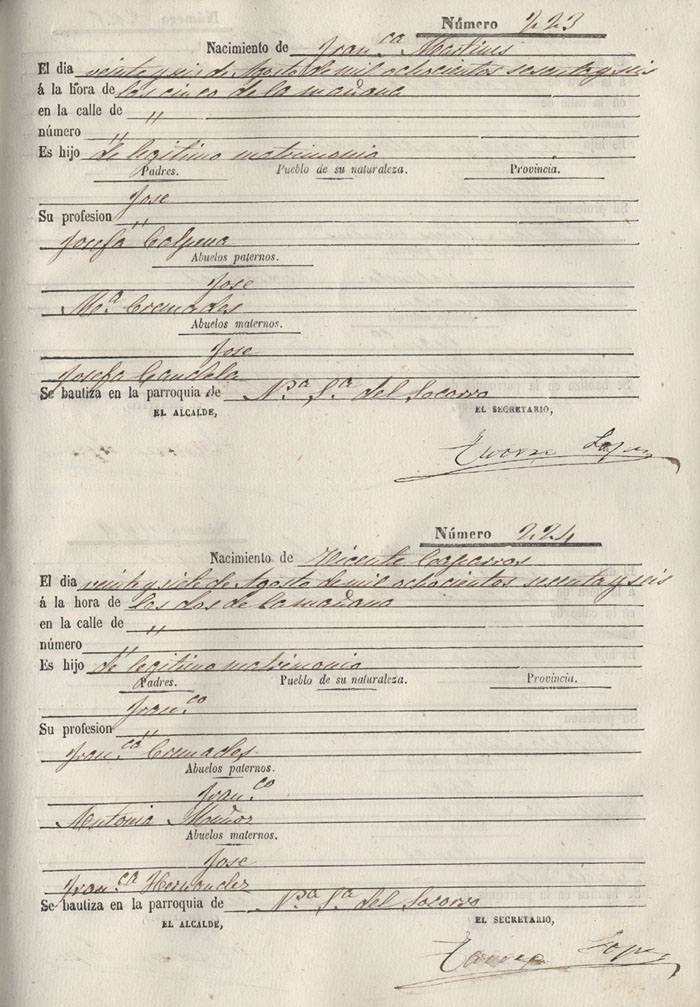 Número 223
Nacimiento de Fran.ca Martinis
El dia veinte y seis de Agosto de mil ochocientos sesenta y seis
á la hora de las cinco de la mañana
en la calle de "
número "
Es hijo de legitimo matrimonio
Padres. Pueblo de su naturaleza. Provincia.
Jose
Su profesion "
Josefa Calpena
Abuelos paternos.
Jose
Ma. Cremades
Abuelos maternos.
Jose
Josefa Candela
Se bautiza en la parroquia de N.a S.a del Socorro
EL ALCALDE, EL SECRETARIO,
Lopez
Número 224
Nacimiento de Vicente Caparros
El dia veinte y siete de Agosto de mil ochocientos sesenta y seis
á la hora de las dos de la mañana
en la calle de "
número "
Es hijo de legitimo matrimonio
Padres. Pueblo de su naturaleza. Provincia.
Fran.co
Su profesion "
Fran.ca Cremades
Abuelos paternos.
Fran.co
Antonia Muñoz
Abuelos maternos.
Jose
Fran.ca Hernandez
Se bautiza en la parroquia de N.a S.a del Socorro
EL ALCALDE, EL SECRETARIO,
Lopez